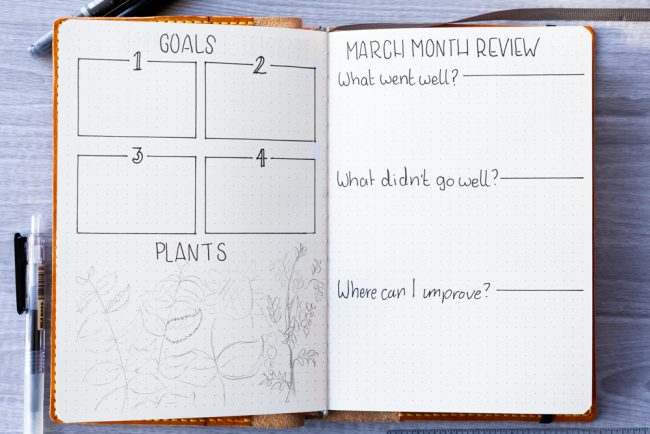 GOALS
1 2
3 4
PLANTS
MARCH MONTH REVIEW
What went well?
What didn't go well?
Where can I improve?